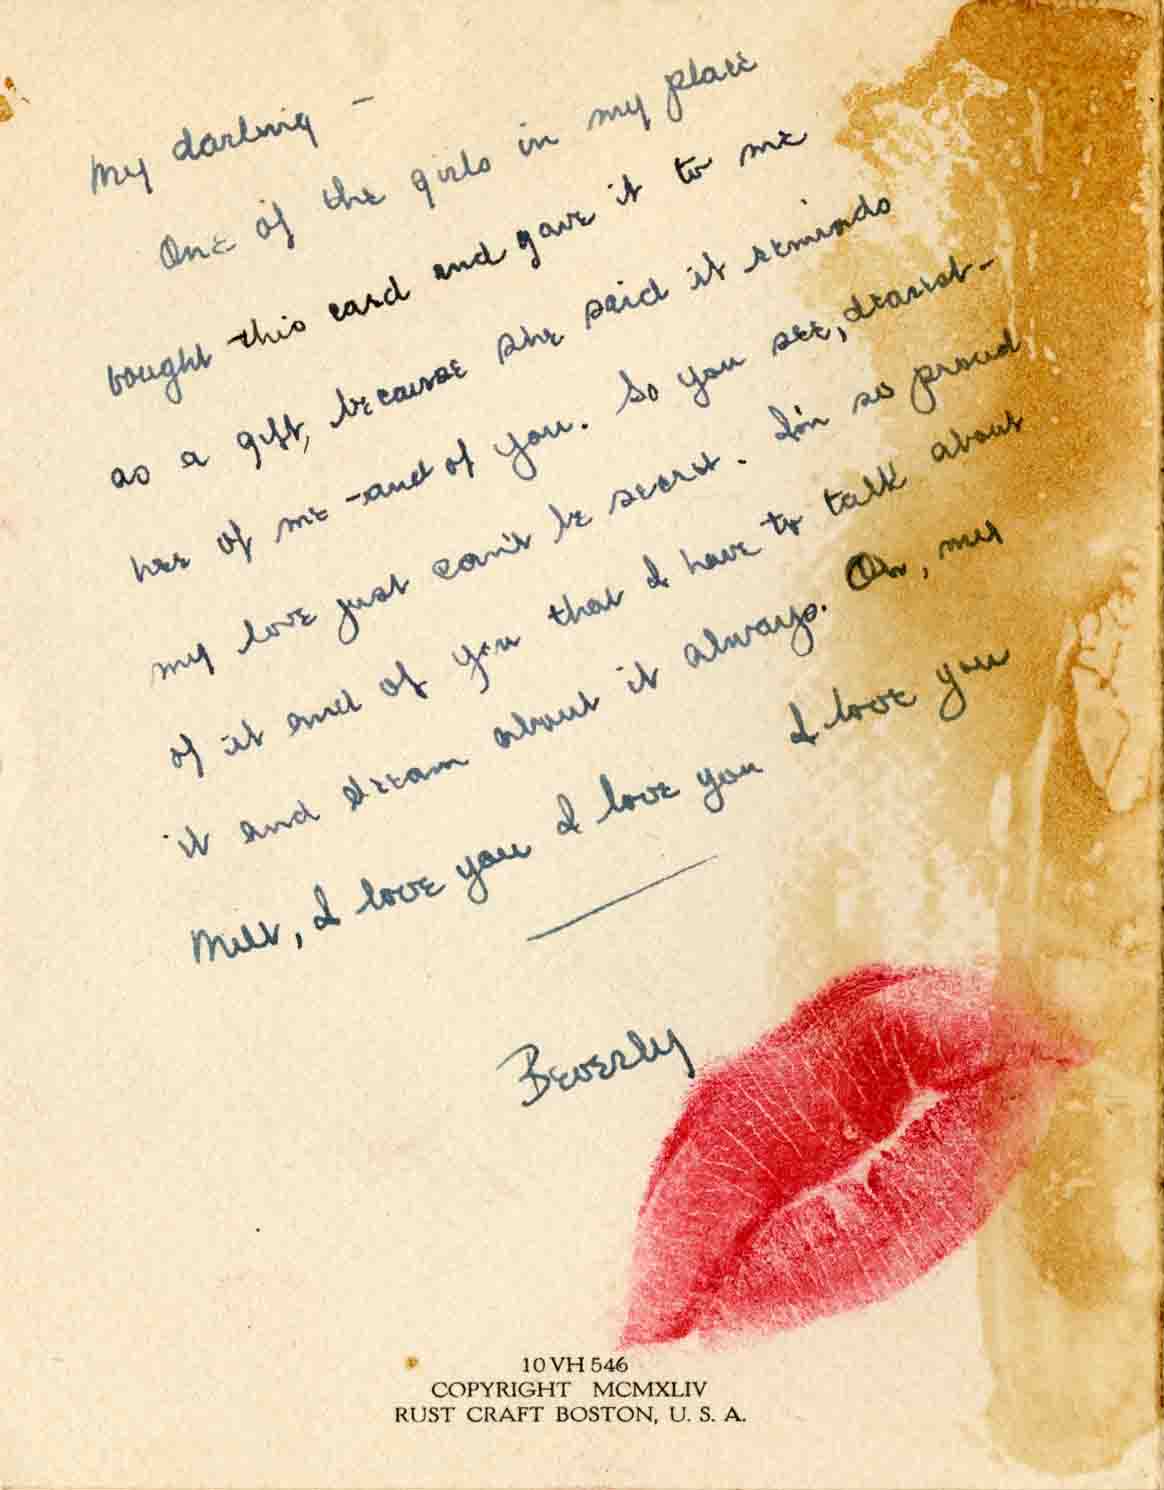 My darling –
One of the girls in my place
bought this card and gave it to me
as a gift, because she said it reminds
her of me – and of you. So you see, dearest –
my love just can't be secret. I'm so proud
of it and of you that I have to talk about
it and dream about it always. Oh, my
Milt, I love you I love you I love you
Beverly
10 VH 546
COPYRIGHT MCMXLIV
RUST CRAFT BOSTON, U. S. A.